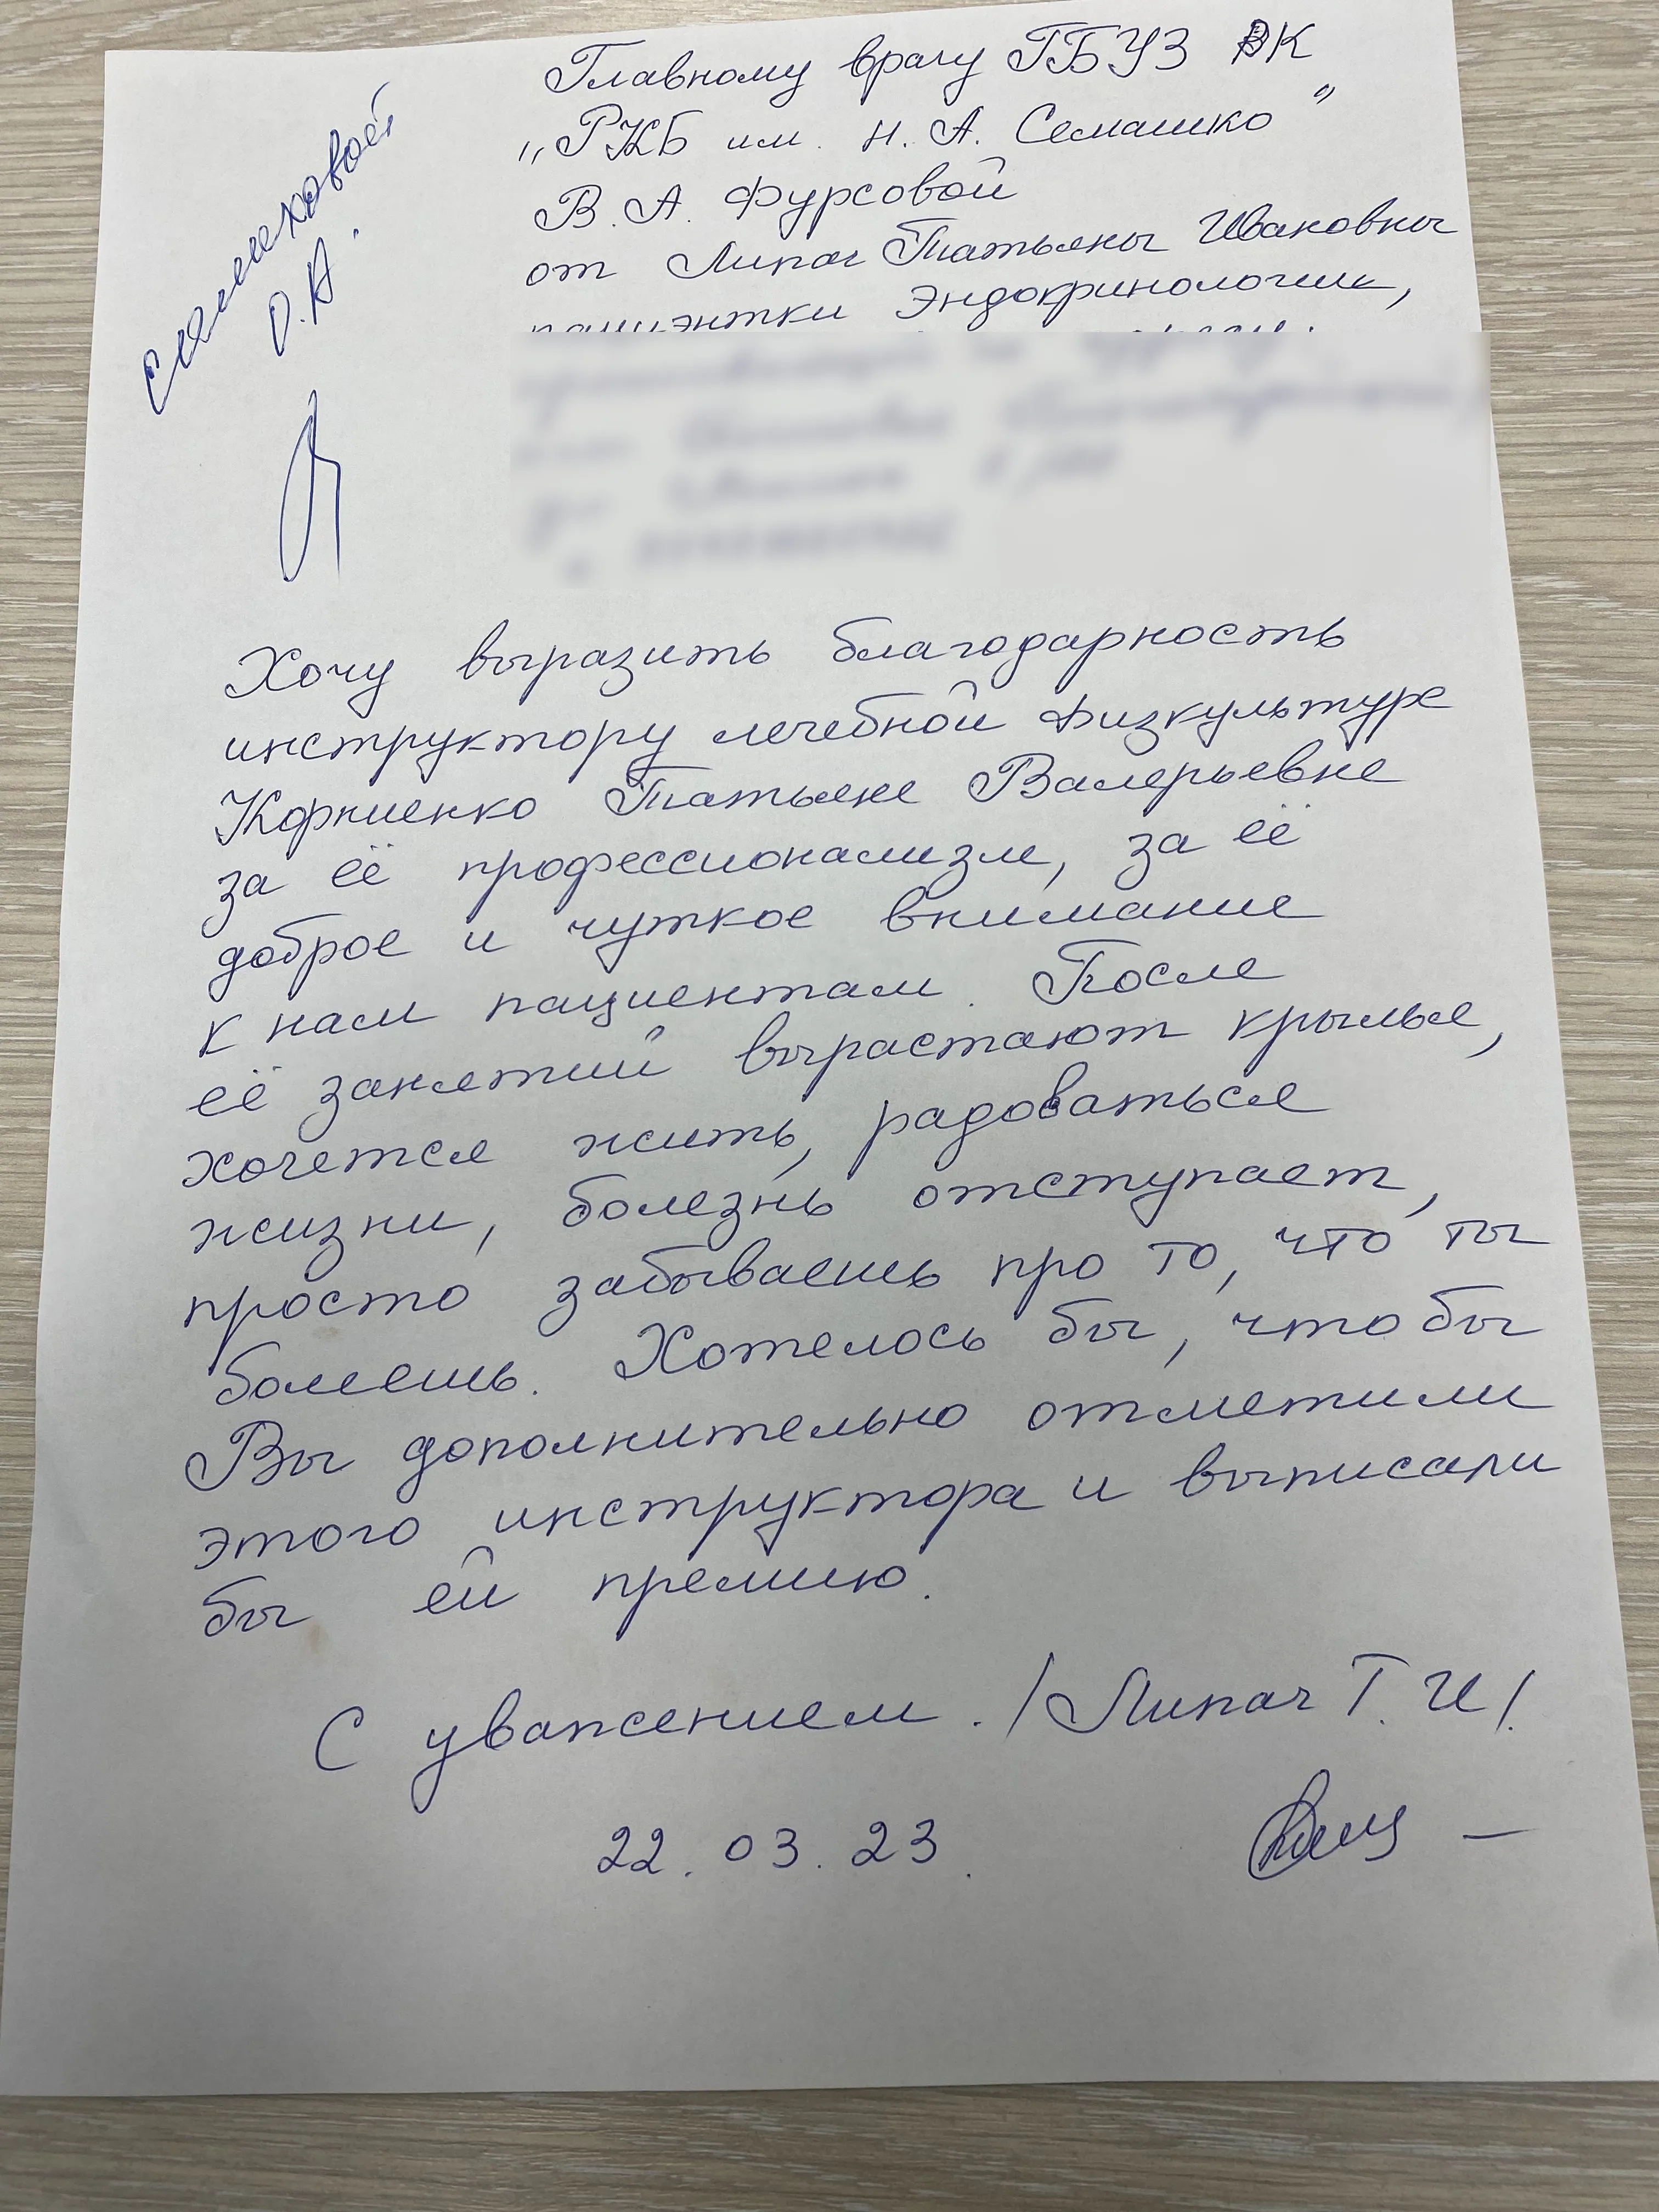 Главному врачу ГБУЗ РК
"РКБ им. Н. А. Семашко"
В. А. Фурсовой
от Липач Татьяны Ивановны
пациэнтки Эндокринологии,
О. А.
Хочу выразить благодарность
инструктору лечебной физкультуре
Корниенко Татьяне Валерьевне
за её профессионализм, за её
доброе и чуткое внимание
к нам пациентам. После
её занятий вырастают крылья,
хочется жить, радоваться
жизни, болезнь отступает,
просто забываешь про то, что ты
болеешь. Хотелось бы, что бы
Вы дополнительно отметили
этого инструктора и выписали
бы ей премию.
С уважением. /Липач Т. И/.
22.03.23.